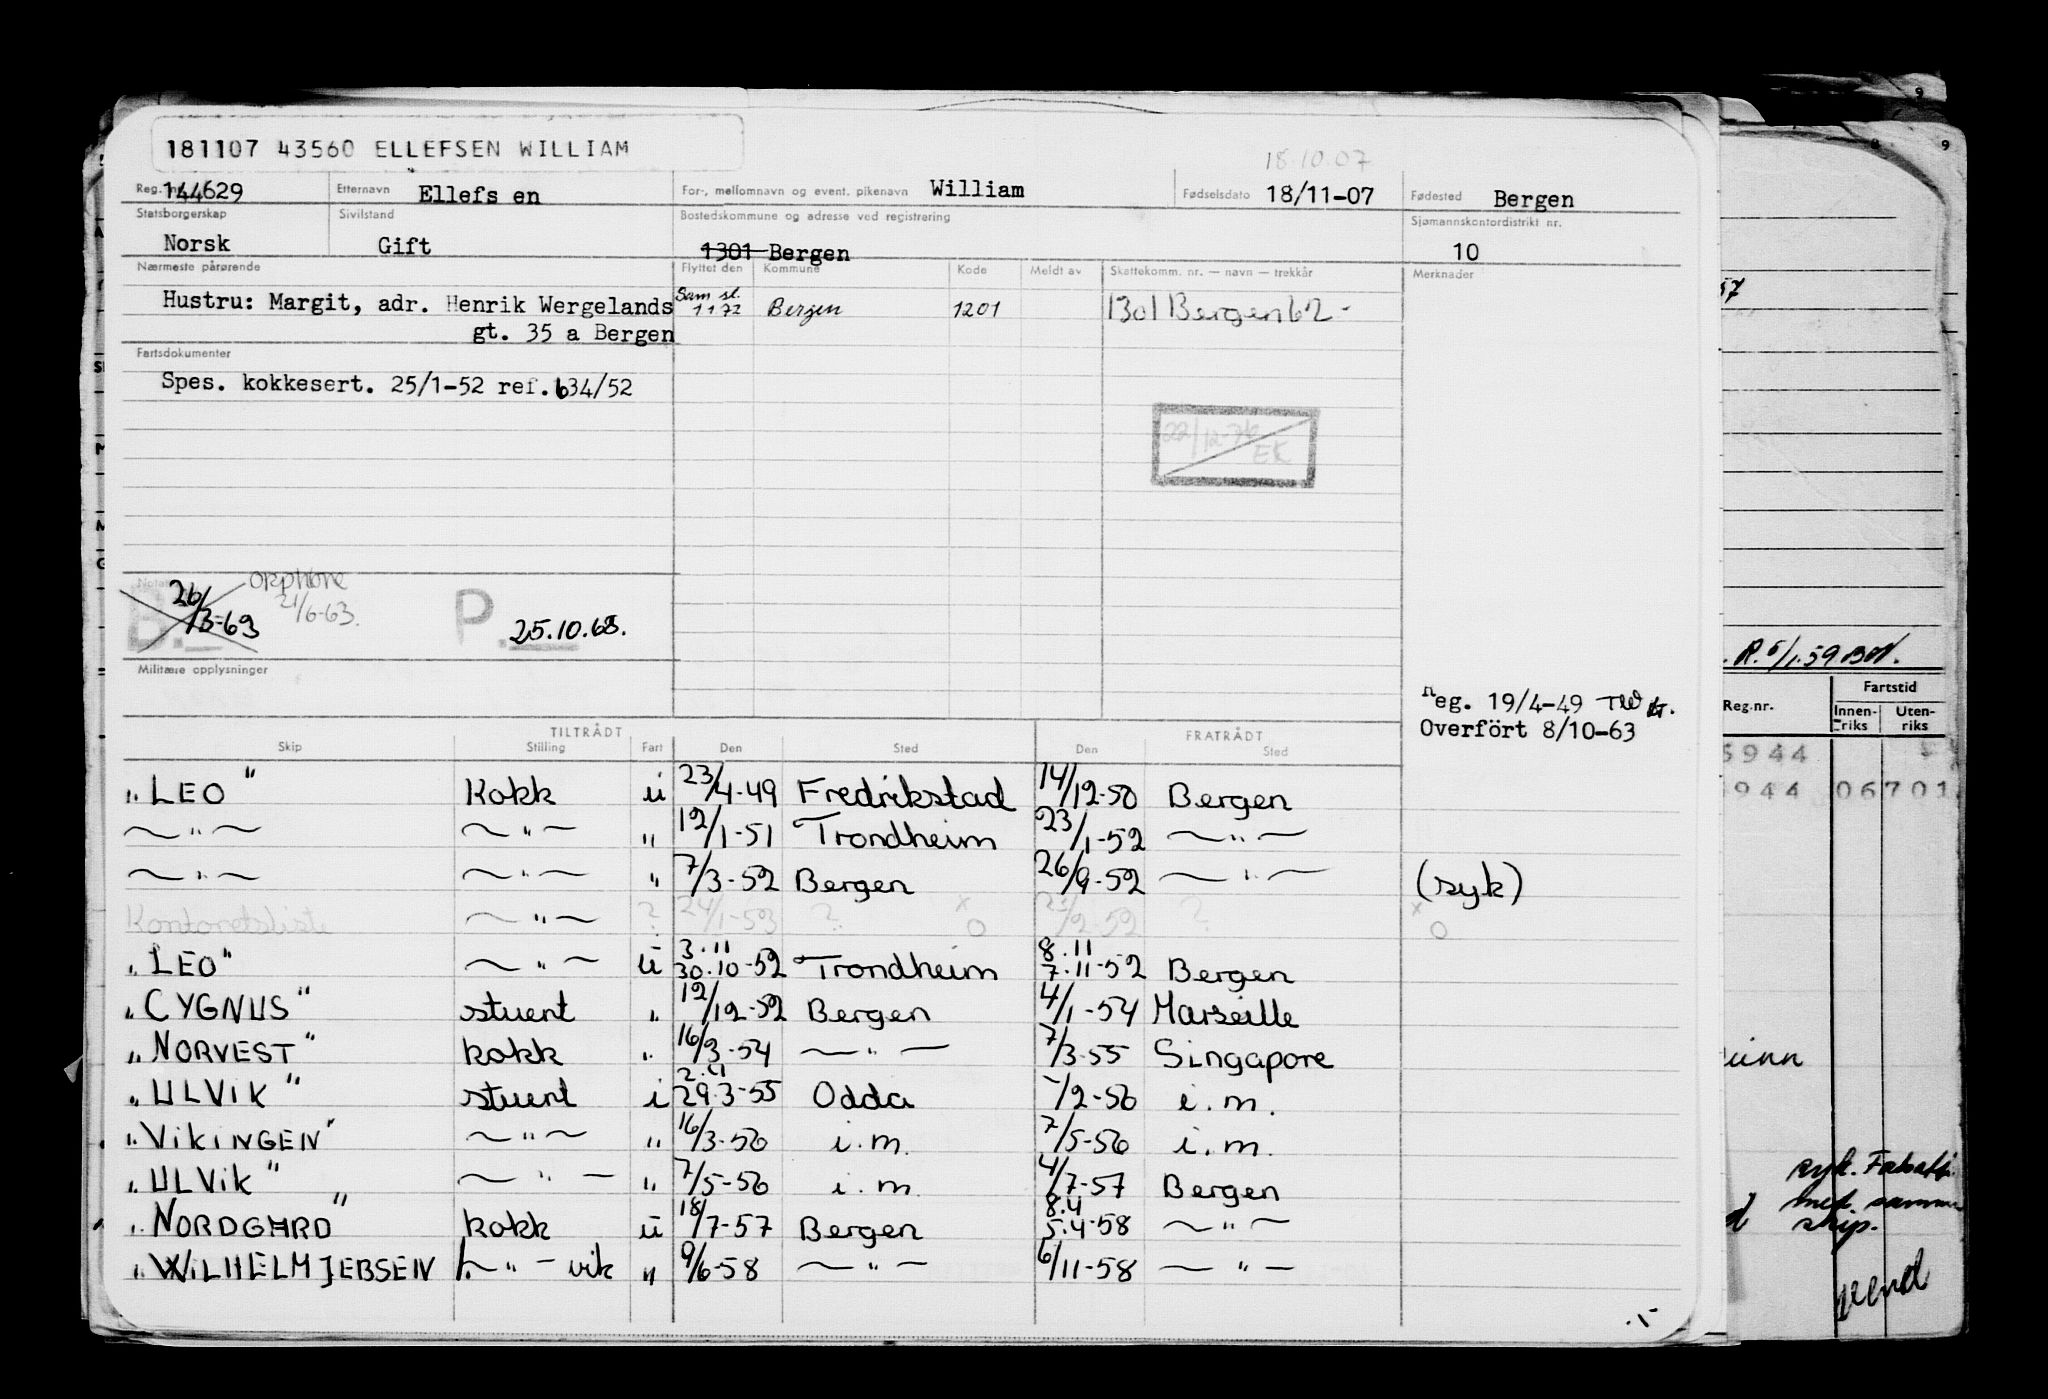 181107 43560 ELLEFSEN WILLIAM
18.10.07
Reg. nr. 144629 Etternavn Ellefsen For-, mellomnavn og event. pikenavn William Fødselsdato 18/11-07 Fødested Bergen
Statsborgerskap Sivilstand Bostedskommune og adresse ved registrering Sjømannskontordistrikt nr.
Norsk Gift 1301 Bergen 10
Nærmeste pårørende Flyttet den Kommune Kode Meldt av Skattekomm. nr. — navn — trekkår Merknader
Hustru: Margit, adr. Henrik Wergelands Sam. sl. 1 1 72 Bergen 1201 1301 Bergen 62-
gt. 35 a Bergen
Fartsdokumenter
Spes. kokkesert. 25/1-52 ref. 634/52
22/12-76
EK
Notater
B. 26/3-63 21/6-63. P. 25.10.68.
Militære opplysninger
Reg. 19/4-49
Overfört 8/10-63
TILTRÅDT FRATRÅDT
Skip Stilling Fart Den Sted Den Sted
"LEO" Kokk ü 23/4-49 Fredrikstad 14/12-50 Bergen
—"— —"— " 12/1-51 Trondheim 23/1-52 —"—
—"— —"— " 7/3-52 Bergen 26/9-52 —"— (syk)
Kontoretsliste —"— ? 24/1-53 ? x o 23/2-52 ? x o
3.11 8.11
"LEO" —"— ü 30.10-52 Trondheim 7.11-52 Bergen
"CYGNUS" stuert " 12/12-52 Bergen 4/1-54 Marseille
"NORVEST" kokk " 16/3-54 —"— 7/3-55 Singapore
2.4
"ULVIK" stuert i 29.3-55 Odda -/2-56 i.m.
"VIKINGEN" —"— " 16/3-56 i.m. 7/5-56 i.m.
"ULVIK" —"— " 7/5-56 i.m. 4/7-57 Bergen
8.4
"NORDGARD" kokk ü 18/7-57 Bergen 5.4-58 —"—
"WILHELM JEBSEN —"— vik " 9/6-58 —"— 6/11-58 —"—
57
R. 5/1.59
Reg.nr. Fartstid
Innen-riks Uten-riks
5944
944 06701
syk.
med. samme
skip.